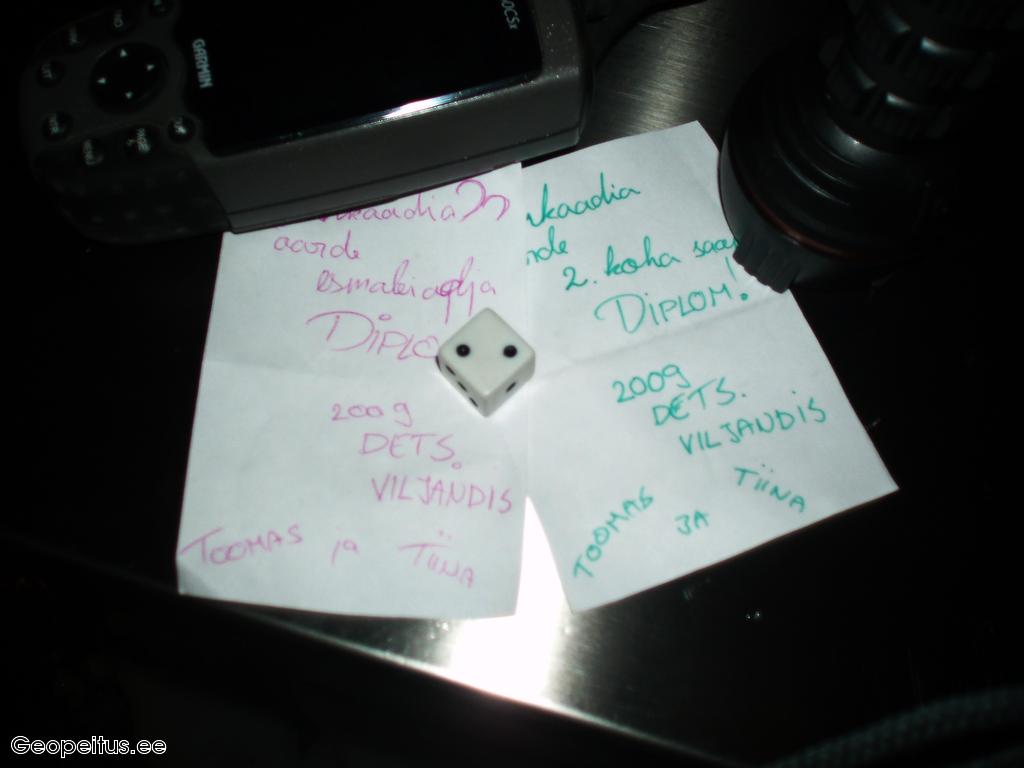 GARMIN
aarde
esmaleidja
DIPLO
2009
DETS.
VILJANDIS
TOOMAS ja TIINA
kaadia
rde
2. koha saa
DIPLOM!
2009
DETS.
VILJANDIS
TOOMAS JA TIINA
Geopeitus.ee